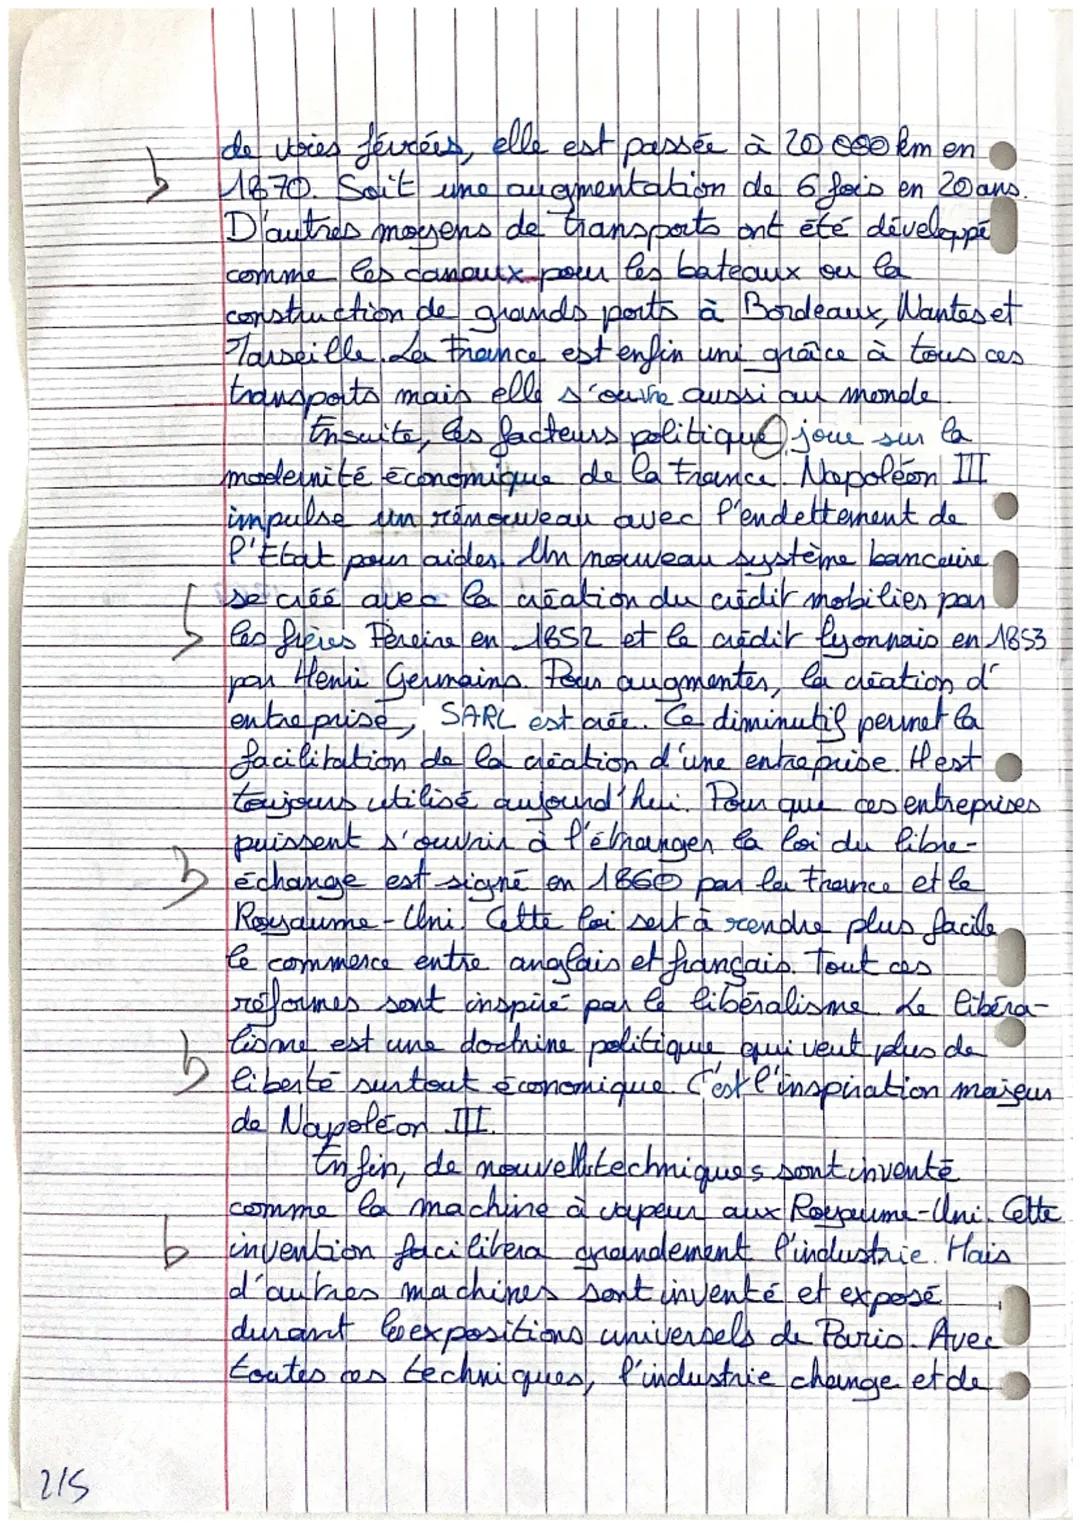 de voies ferrées, elle est passée à 20 000 km en
b 1870. Soit une augmentation de 6 fois en 20 ans.
D'autres moyens de transports ont été développé
comme les canaux pour les bateaux ou la
construction de grands ports à Bordeaux, Nantes et
Marseille. La France est enfin uni grâce à tous ces
transports mais elle s'ouvre aussi au monde.
Ensuite, les facteurs politique joue sur la
modernité économique de la France. Napoléon III
impulse un rénouveau avec l'endettement de
l'Etat pour aider. Un nouveau système bancaire
se créé avec la création du crédit mobilier par
les frères Péreire en 1852 et le crédit lyonnais en 1853
par Henri Germains. Pour augmenter, la création d'
entreprise, SARL est crée. Ce diminutif permet la
facilitation de la création d'une entreprise. Il est
toujours utilisé aujourd'hui. Pour que ces entreprises
puissent s'ouvrir à l'étranger la loi du libre-
b échange est signé en 1860 par la France et le
Royaume-Uni. Cette loi sert à rendre plus facile
le commerce entre anglais et français. Tout ces
réformes sont inspiré par le libéralisme. Le libéra-
b lisme est une doctrine politique qui veut plus de
liberté surtout économique. C'est l'inspiration majeur
de Napoléon III.
Enfin, de nouvelles techniques sont inventé
comme la machine à vapeur aux Royaume-Uni. Cette
b invention facilitera grandement l'industrie. Mais
d'autres machines sont inventé et exposé
durant les expositions universels de Paris. Avec
toutes ces techniques, l'industrie change et de
2/5